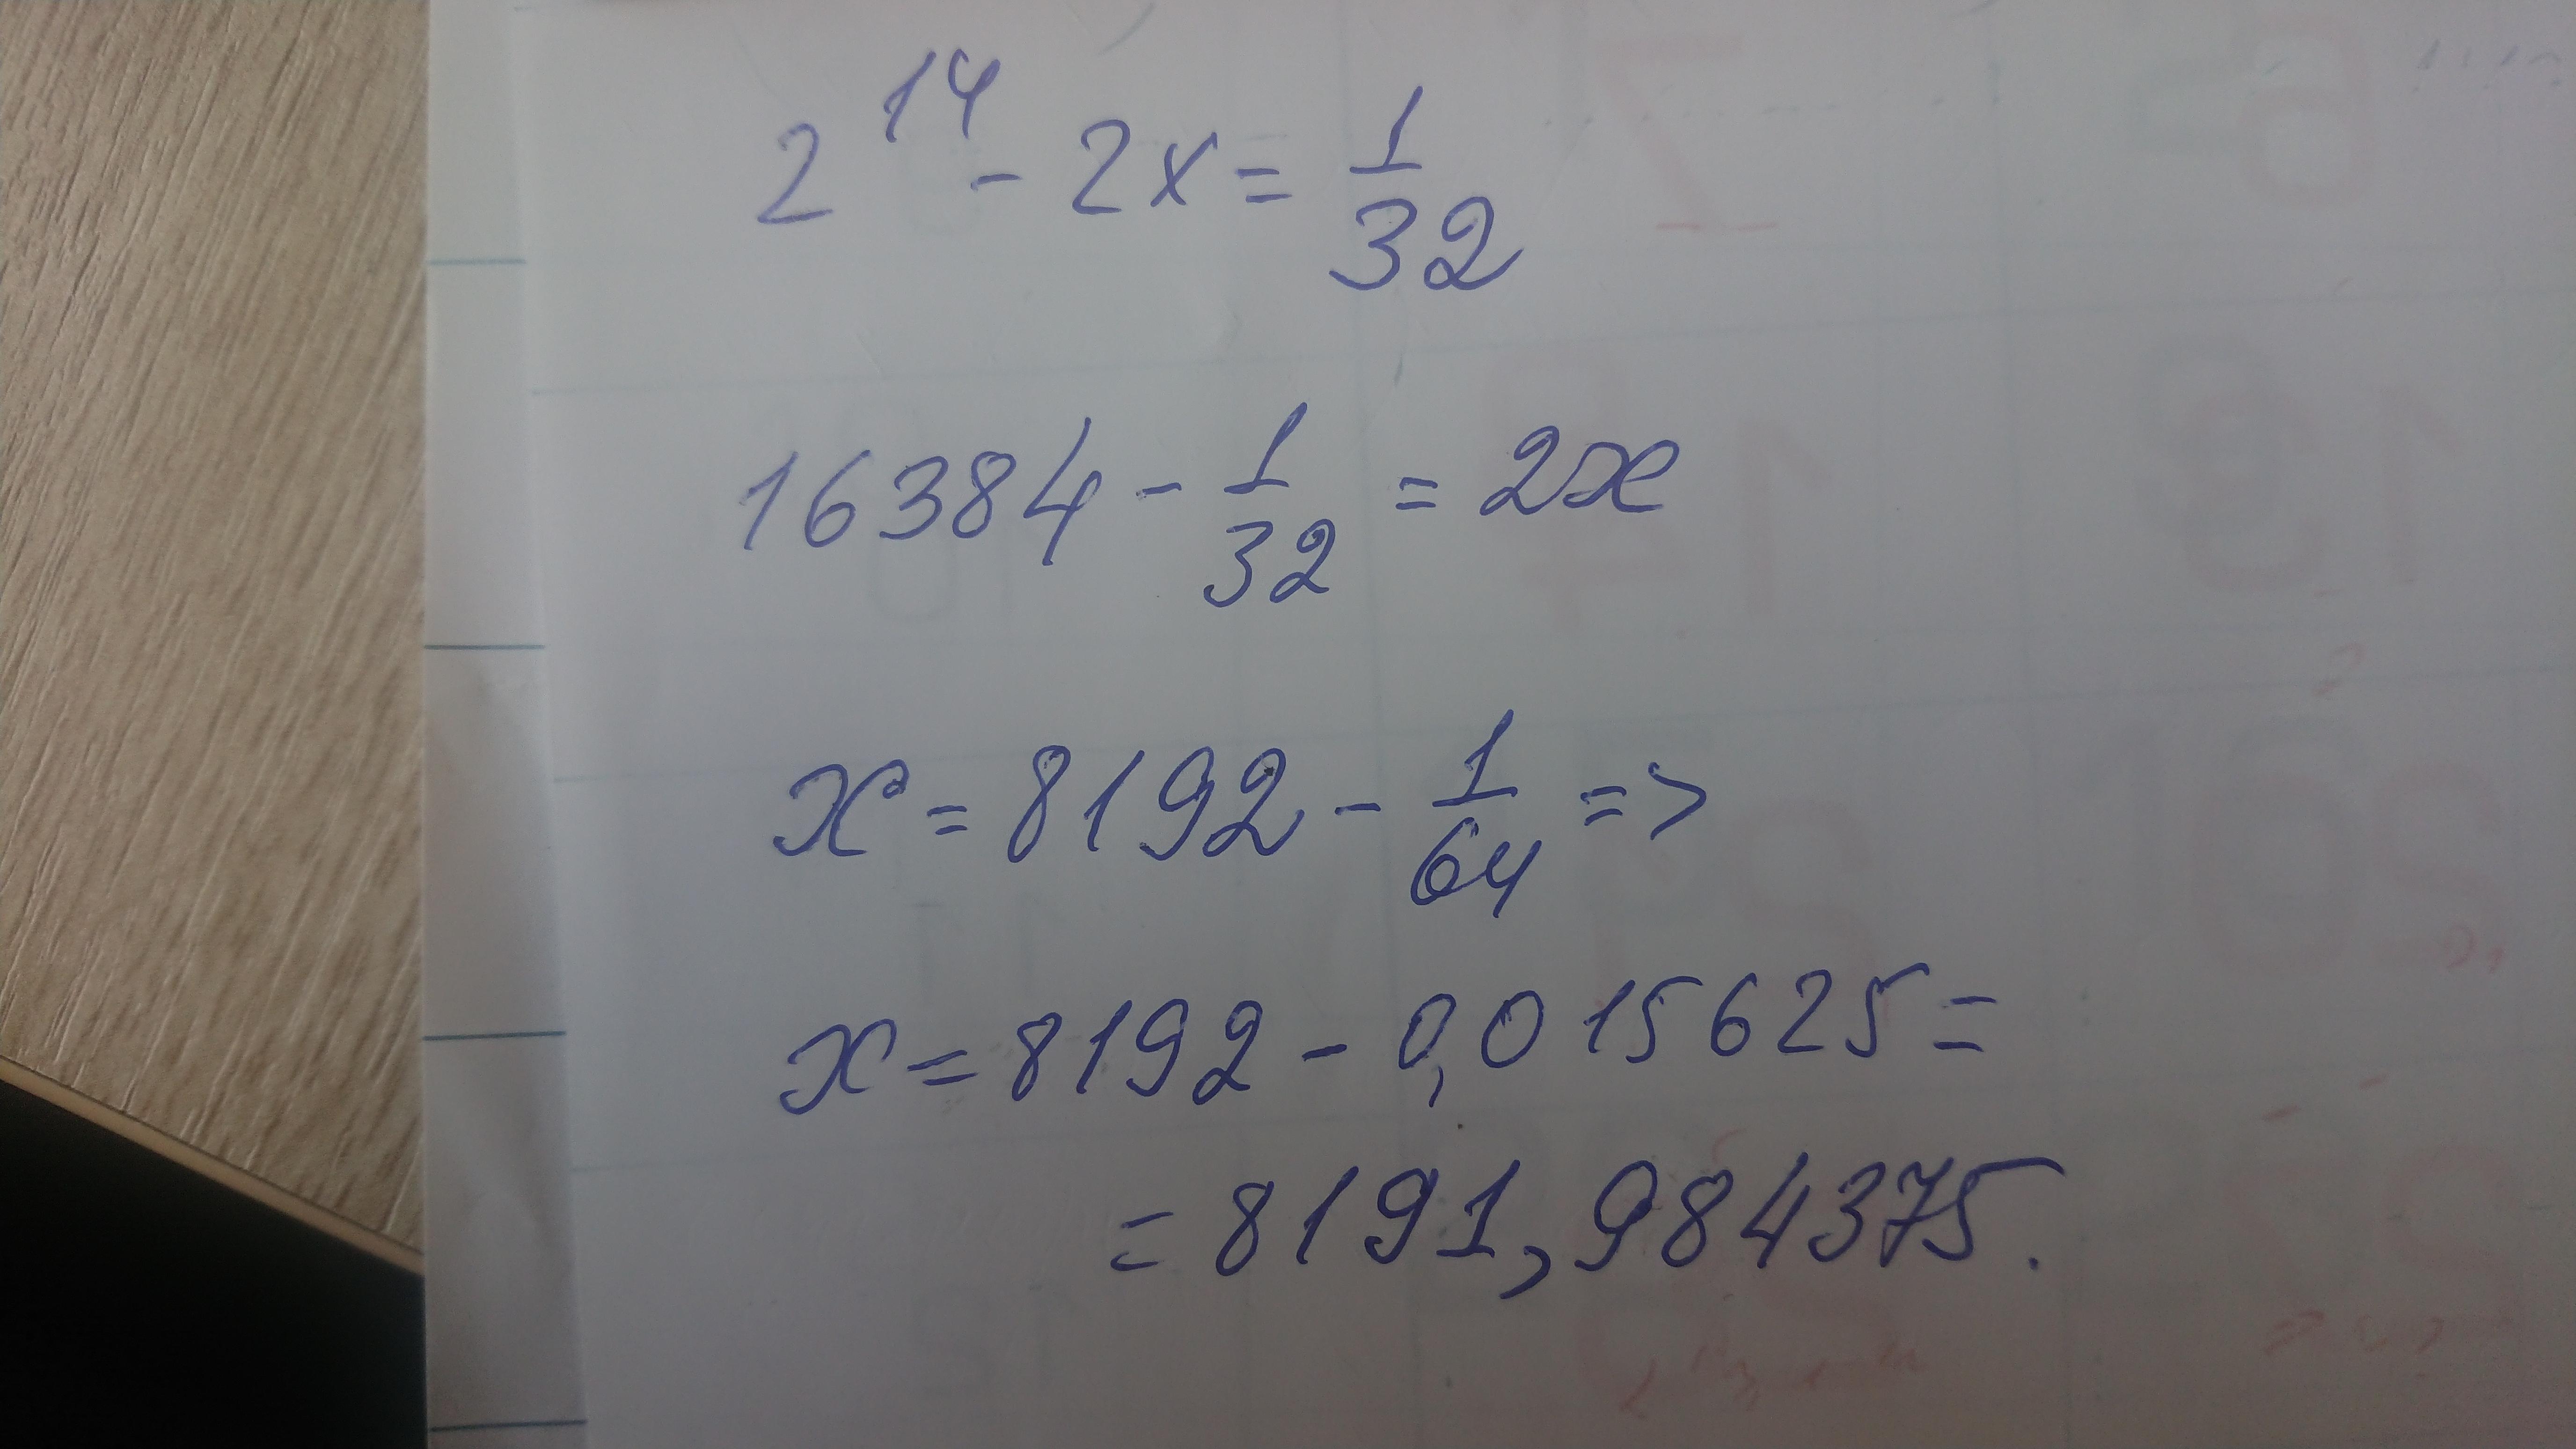 2^14 - 2x = 1/32
16384 - 1/32 = 2x
x = 8192 - 1/64 =>
x = 8192 - 0,015625 =
= 8191,984375.